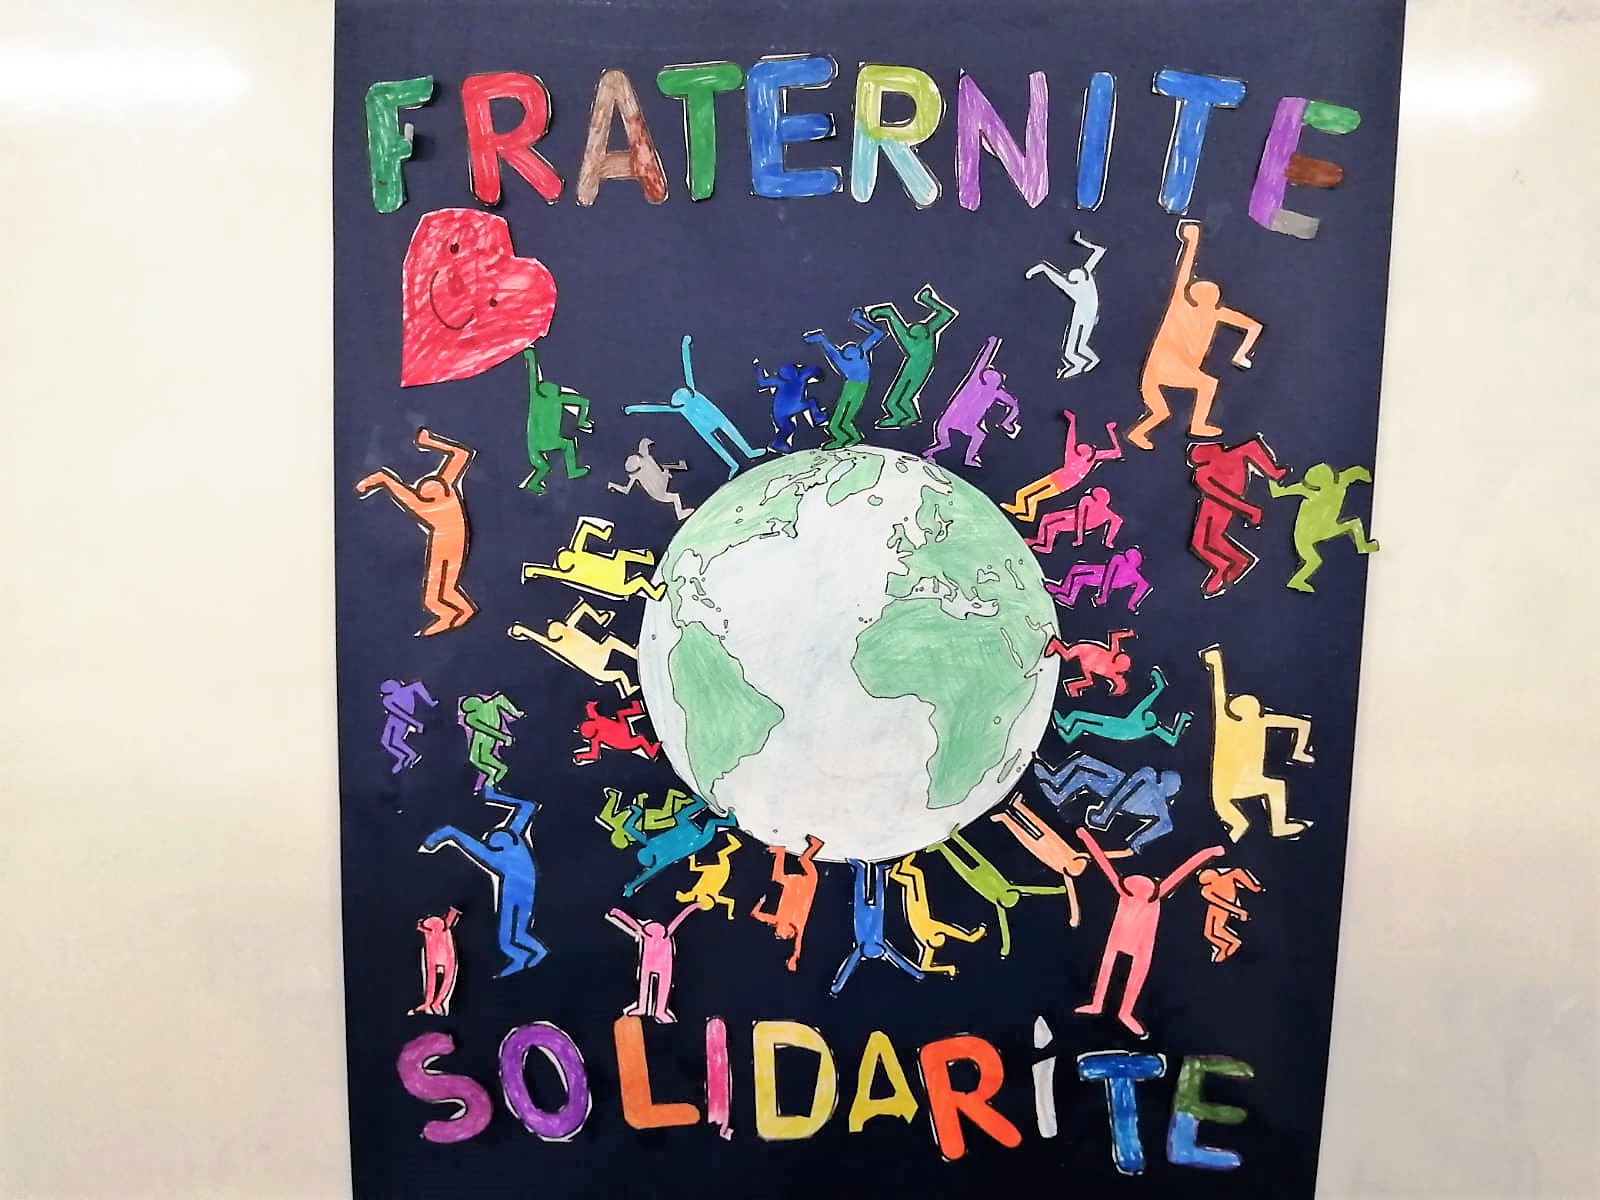 FRATERNITE
SOLIDARiTE